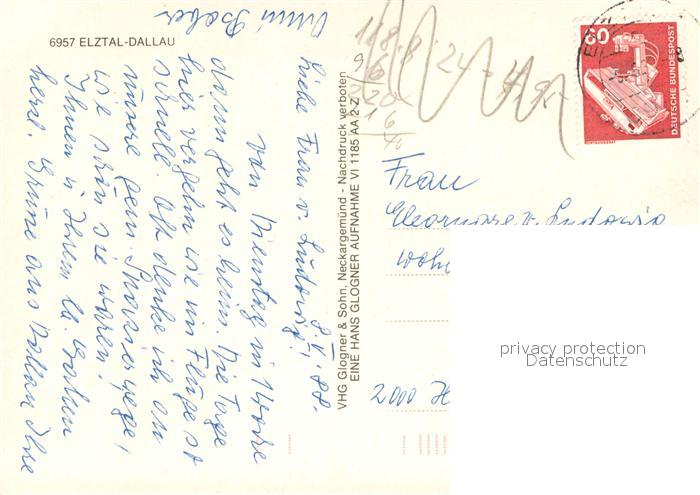 6957 ELZTAL-DALLAU
8.V.88.
Liebe Frau v. Ludowig!
Von Dienstag in 1 Woche
dann geht es heim. Die Tage
hier vergehn wie im Fluge so
schnell. Oft denke ich an
unsere gem. Spaziergänge,
wie schön sie waren.
Ihnen u. Ihrem lb. Gatten
herzl. Grüsse aus Dallau Ihre
Baber
VHG Glogner & Sohn, Neckargemünd - Nachdruck verboten
EINE HANS GLOGNER AUFNAHME VI 1185 AA 2-Z
60
DEUTSCHE BUNDESPOST
Frau
Eleonore v. Ludowig
2000 H
privacy protection
Datenschutz